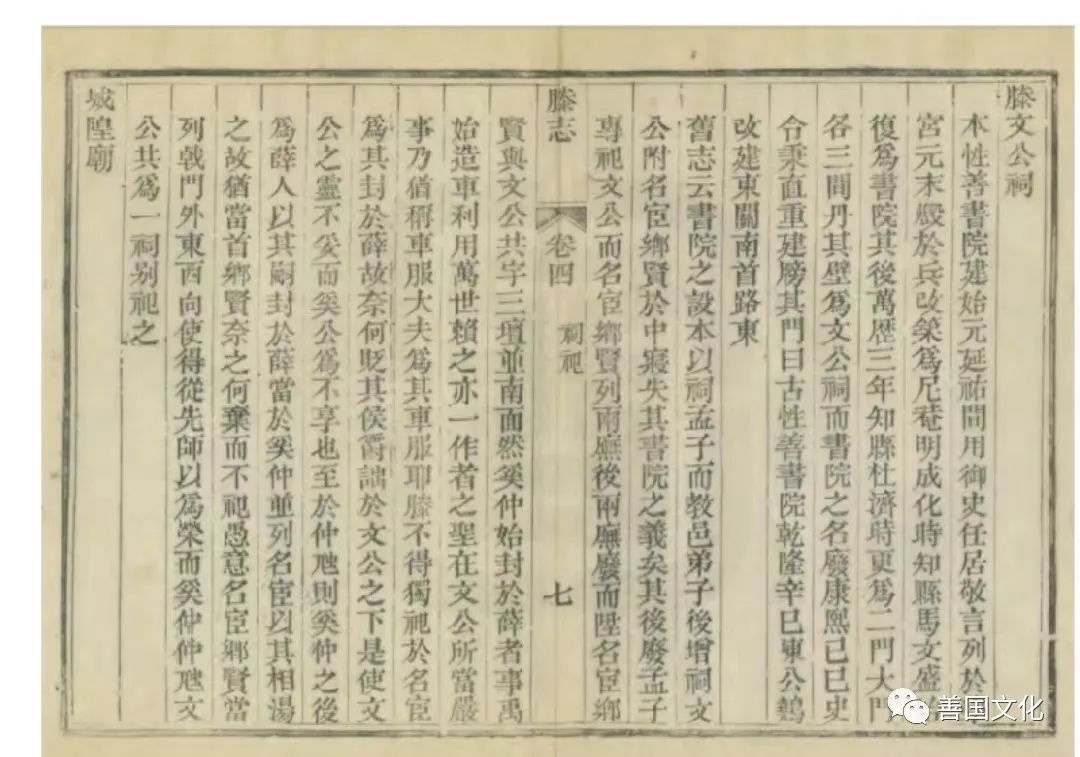 滕文公祠
本性善書院建始元延祐間用御史任居敬言列於
宮元末燬於兵改築爲尼菴明成化時知縣馬文盛
復爲書院其後萬歷三年知縣杜濟時更爲二門大門
各三間丹其壁爲文公祠而書院之名廢康熙己巳史
令秉直重建牓其門曰古性善書院乾隆辛巳東公鶴
改建東關南首路東
舊志云書院之設本以祠孟子而教邑弟子後增祠文
公附名宦鄉賢於中寢失其書院之義矣其後廢孟子
專祀文公而名宦鄉賢列兩廡後兩廡廢而陞名宦鄉
滕志
卷四
祠祀
七
賢與文公共宇三壇並南面然奚仲始封於薛者事禹
始造車利用萬世賴之亦一作者之聖在文公所當嚴
事乃猶稱車服大夫爲其車服耶滕不得獨祀於名宦
爲其封於薛故奈何貶其侯爵詘於文公之下是使文
公之靈不妥而奚公爲不享也至於仲虺則奚仲之後
爲薛人以其嗣封於薛當於奚仲並列名宦以其相湯
之故猶當首鄉賢奈之何棄而不祀愚意名宦鄉賢當
列戟門外東西向使得從先師以爲榮而奚仲仲虺文
公共爲一祠别祀之
城隍廟
善国文化